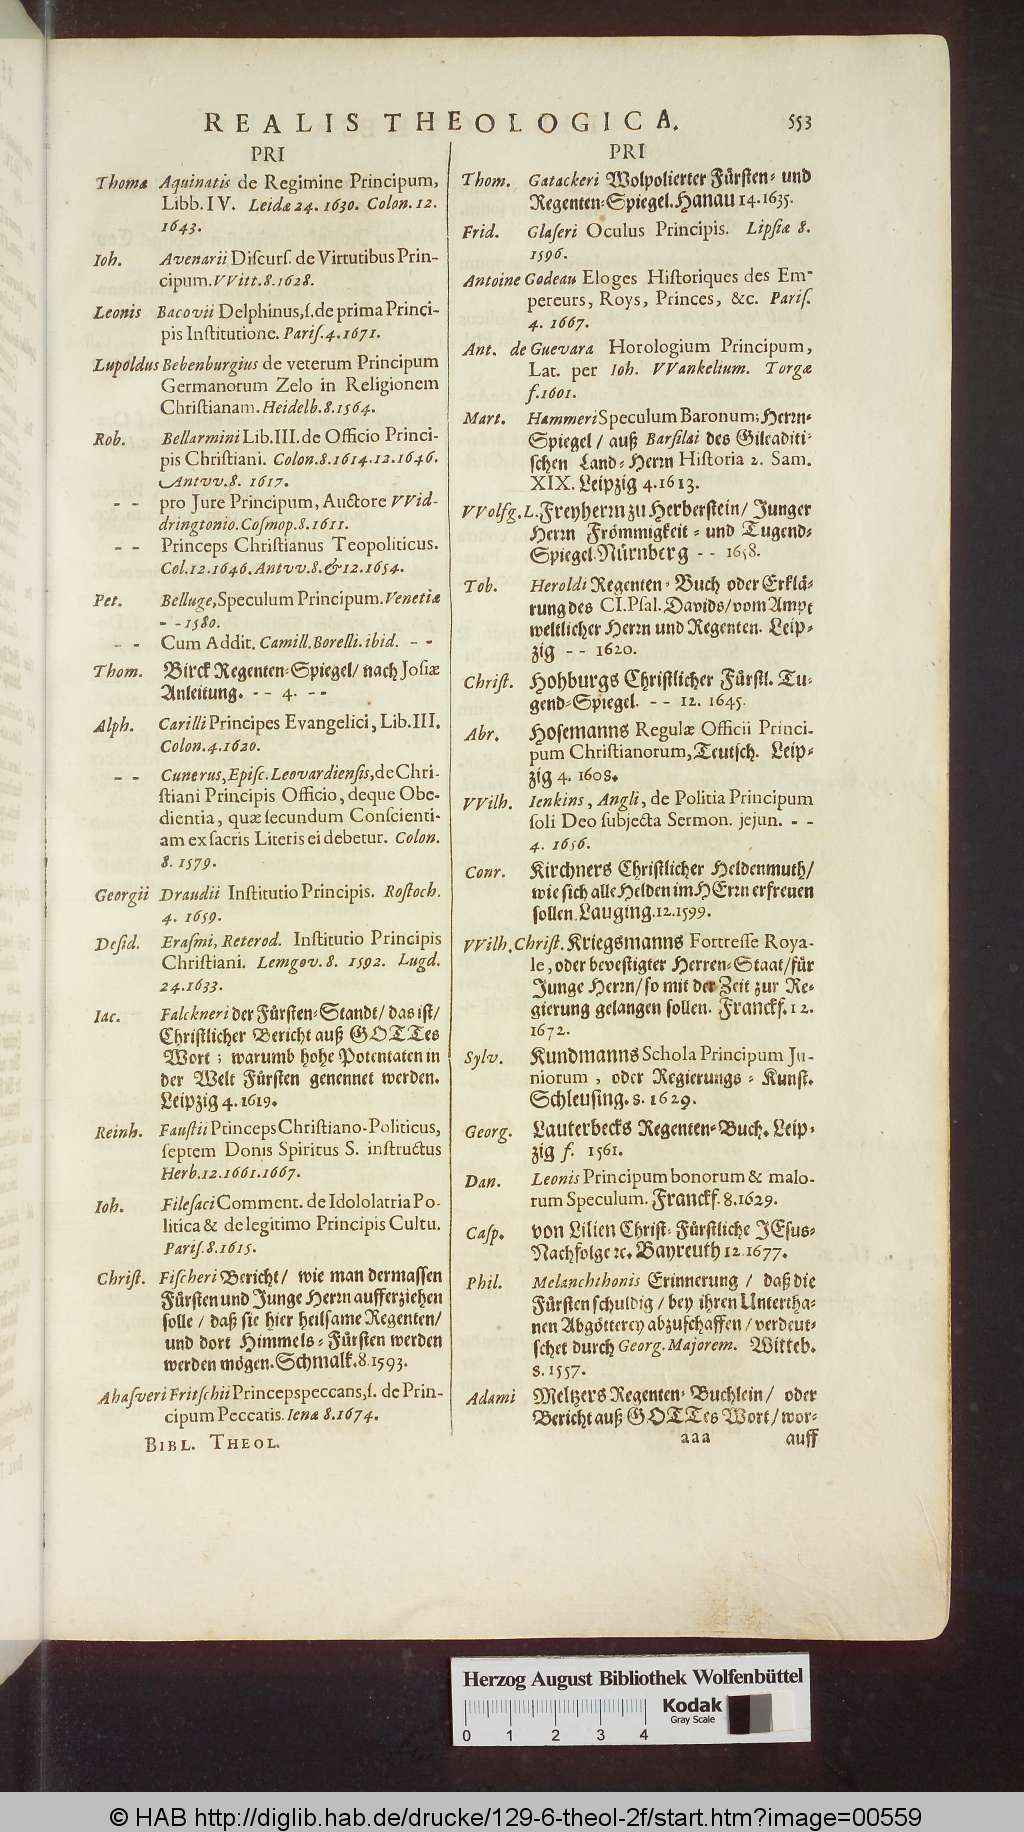 REALIS THEOLOGICA. 553
PRI
Thomæ Aquinatis de Regimine Principum,
Libb. IV. Leidæ 24. 1630. Colon. 12.
1643.
Ioh. Avenarii Discurs. de Virtutibus Prin-
cipum. VVitt. 8. 1628.
Leonis Bacovii Delphinus, s. de prima Princi-
pis Institutione. Paris. 4. 1671.
Lupoldus Bebenburgius de veterum Principum
Germanorum Zelo in Religionem
Christianam. Heidelb. 8. 1564.
Rob. Bellarmini Lib. III. de Officio Princi-
pis Christiani. Colon. 8. 1614. 12. 1646.
Antvv. 8. 1617.
- - pro Jure Principum, Auctore VVid-
dringtonio. Cosmop. 8. 1611.
- - Princeps Christianus Teopoliticus.
Col. 12. 1646. Antvv. 8. & 12. 1654.
Pet. Belluge, Speculum Principum. Venetiæ
- - 1580.
- - Cum Addit. Camill. Borelli. ibid. - -
Thom. Birck Regenten-Spiegel/ nach Josiæ
Anleitung. - - 4. - -
Alph. Carilli Principes Evangelici, Lib. III.
Colon. 4. 1620.
- - Cunerus, Episc. Leovardiensis, de Chri-
stiani Principis Officio, deque Obe-
dientia, quæ secundum Conscienti-
am ex sacris Literis ei debetur. Colon.
8. 1579.
Georgii Draudii Institutio Principis. Rostoch.
4. 1659.
Desid. Erasmi, Reterod. Institutio Principis
Christiani. Lemgov. 8. 1592. Lugd.
24. 1633.
Iac. Falckneri der Fürsten-Standt/ das ist/
Christlicher Bericht auß GOTTes
Wort; warumb hohe Potentaten in
der Welt Fürsten genennet werden.
Leipzig 4. 1619.
Reinh. Faustii Princeps Christiano-Politicus,
septem Donis Spiritus S. instructus
Herb. 12. 1661. 1667.
Ioh. Filesaci Comment. de Idololatria Po-
litica & de legitimo Principis Cultu.
Paris. 8. 1615.
Christ. Fischeri Bericht/ wie man dermassen
Fürsten und Junge Herrn aufferziehen
solle / daß sie hier heilsame Regenten/
und dort Himmels-Fürsten werden
werden mögen. Schmalk. 8. 1593.
Ahasveri Fritschii Princeps peccans, s. de Prin-
cipum Peccatis. Ienæ 8. 1674.
BIBL. THEOL.
PRI
Thom. Gatackeri Wolpolierter Fürsten- und
Regenten-Spiegel. Hanau 14. 1635.
Frid. Glaseri Oculus Principis. Lipsiæ 8.
1596.
Antoine Godeau Eloges Historiques des Em-
pereurs, Roys, Princes, &c. Paris.
4. 1667.
Ant. de Guevara Horologium Principum,
Lat. per Ioh. VVankelium. Torgæ
f. 1601.
Mart. Hammeri Speculum Baronum; Herrn-
Spiegel / auß Barsilai des Gileaditi-
schen Land-Herrn Historia 2. Sam.
XIX. Leipzig 4. 1613.
VVolfg. L. Freyherrn zu Herberstein/ Junger
Herrn Frömmigkeit- und Tugend-
Spiegel. Nürnberg - - 1658.
Tob. Heroldi Regenten-Buch oder Erklä-
rung des CI. Psal. Davids/ vom Ampt
weltlicher Herrn und Regenten. Leip-
zig - - 1620.
Christ. Hohburgs Christlicher Fürstl. Tu-
gend-Spiegel. - - 12. 1645.
Abr. Hosemanns Regulæ Officii Princi-
pum Christianorum, Teutsch. Leip-
zig 4. 1608.
VVilh. Ienkins, Angli, de Politia Principum
soli Deo subjecta Sermon. jejun. - -
4. 1656.
Conr. Kirchners Christlicher Heldenmuth/
wie sich alle Helden im HErrn erfreuen
sollen. Lauging. 12. 1599.
VVilh. Christ. Kriegsmanns Fortresse Roya-
le, oder bevestigter Herren-Staat/ für
Junge Herrn/ so mit der Zeit zur Re-
gierung gelangen sollen. Franckf. 12.
1672.
Sylv. Kundmanns Schola Principum Ju-
niorum, oder Regierungs-Kunst.
Schleusing. 8. 1629.
Georg. Lauterbecks Regenten-Buch. Leip-
zig f. 1561.
Dan. Leonis Principum bonorum & malo-
rum Speculum. Franckf. 8. 1629.
Casp. von Lilien Christ-Fürstliche JEsus-
Nachfolge ꝛc. Bayreuth 12. 1677.
Phil. Melanchthonis Erinnerung / daß die
Fürsten schuldig / bey ihren Untertha-
nen Abgötterey abzuschaffen / verdeut-
schet durch Georg. Majorem. Witteb.
8. 1557.
Adami Meltzers Regenten-Buchlein/ oder
Bericht auß GOTTes Wort / wor-
aaa auff
Herzog August Bibliothek Wolfenbüttel
Kodak
Gray Scale
0 1 2 3 4
© HAB http://diglib.hab.de/drucke/129-6-theol-2f/start.htm?image=00559